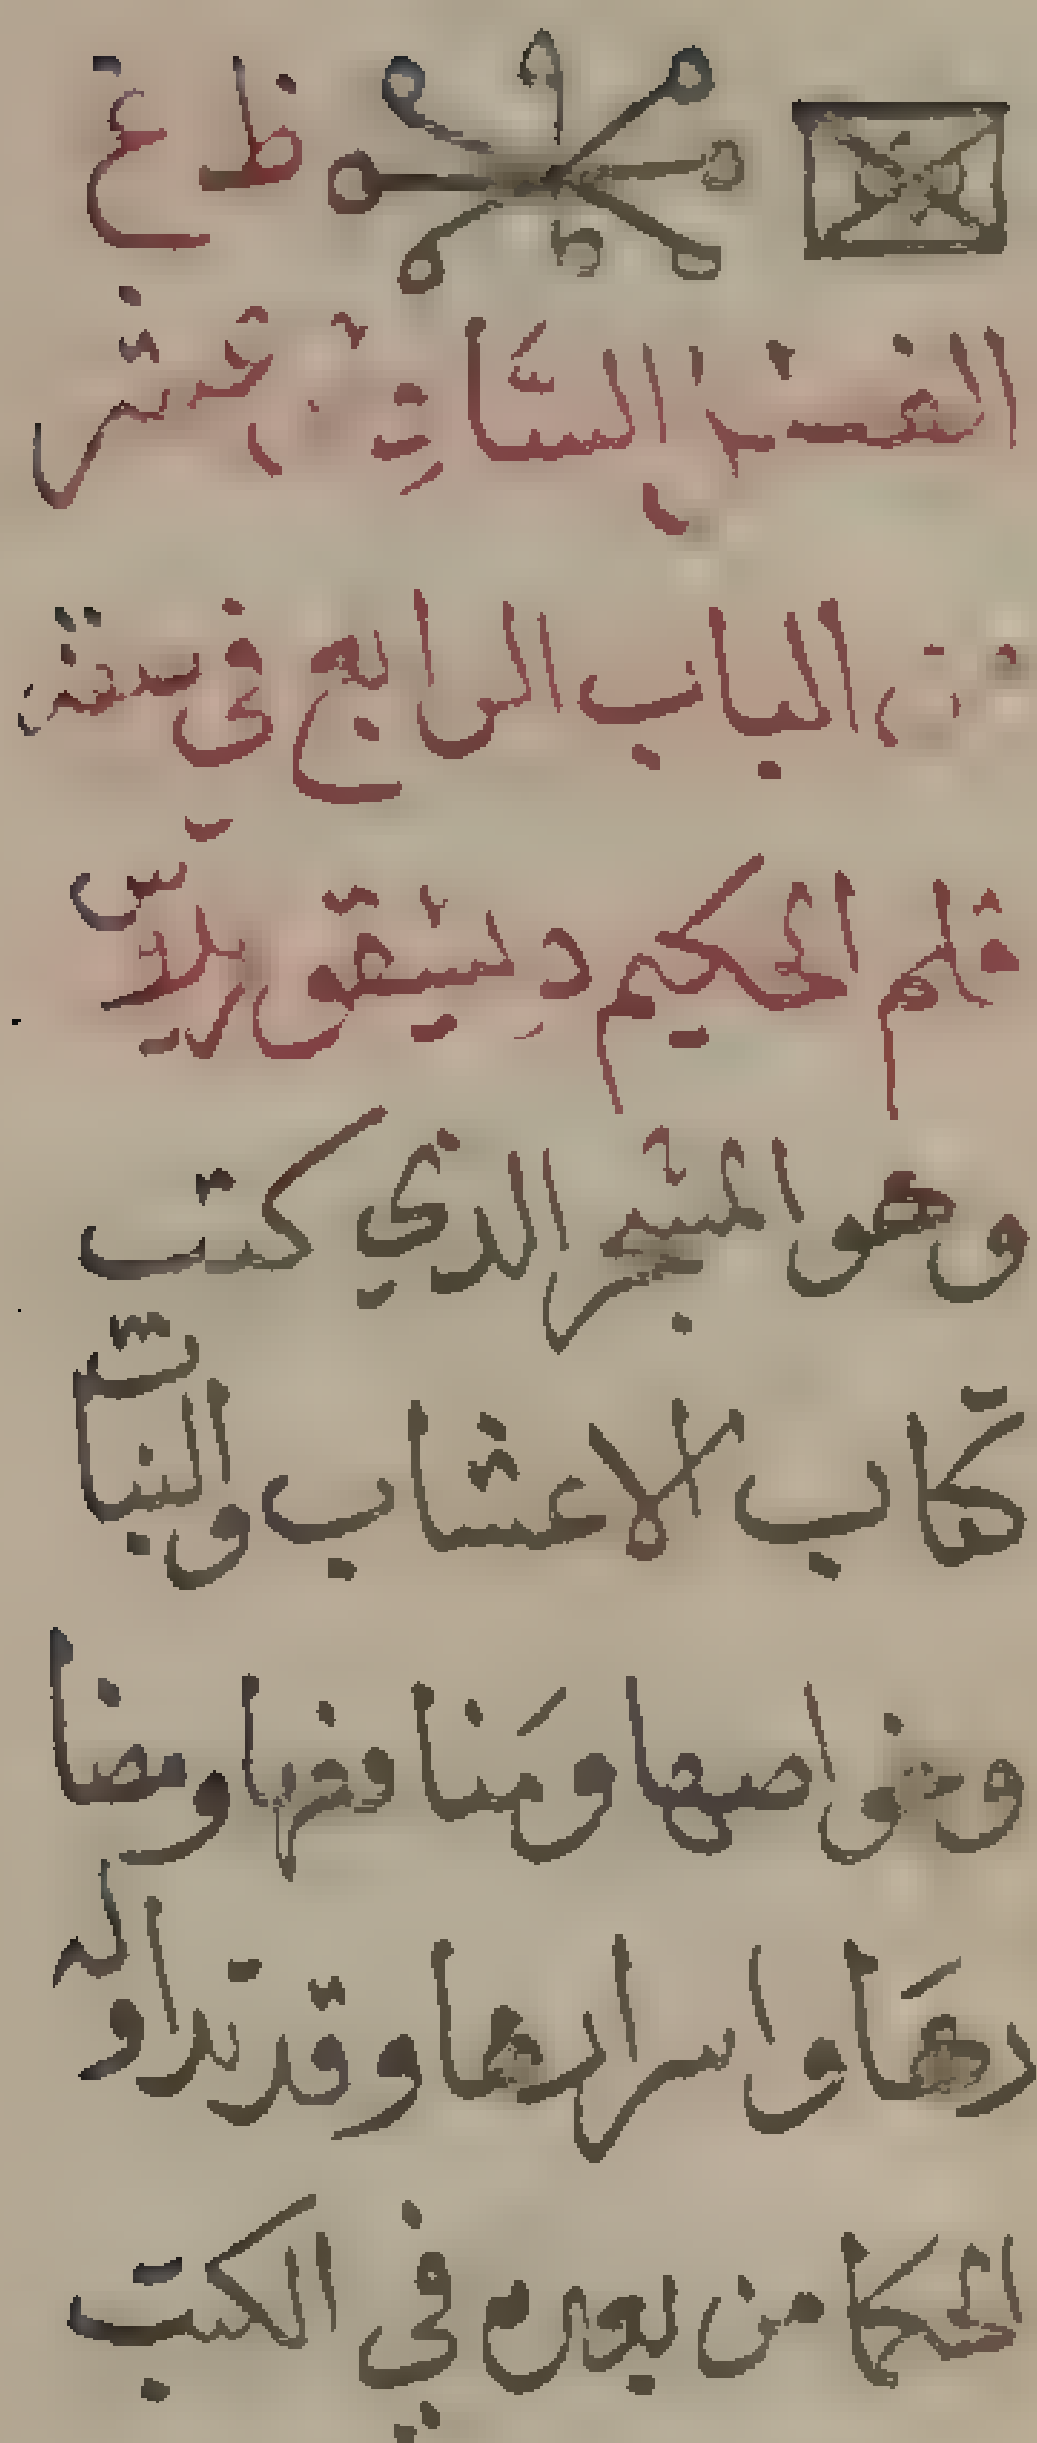 ظ غ
الفصل السَّادِس عشر
من الباب الرابع في صفة
قلم الحكيم ديسقوريدس
وهو المشجر الذي كتب
كتاب الاعشاب والنبات
وخواصها ومَنافعها ومضا
رهَا واسرارها وقد تداوله
الحكما من بعده في الكتب